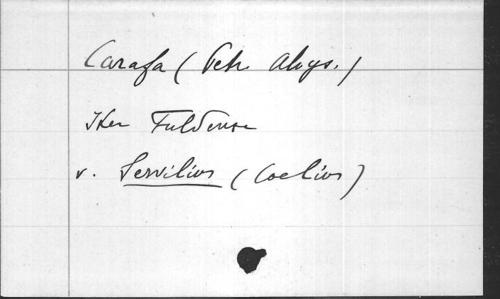 Carafa (Petr. Aloys.)
Iter Fuldense
v. Servilius (Coelius)